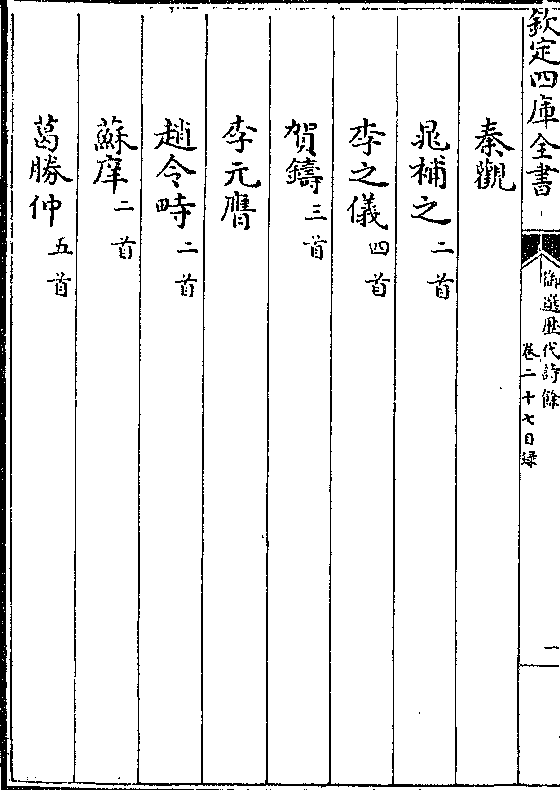 欽定四庫全書
御選歷代詩餘
卷二十七目錄
一
秦觀
晁補之二首
李之儀四首
賀鑄三首
李元膺
趙令畤二首
蘇庠二首
葛勝仲五首